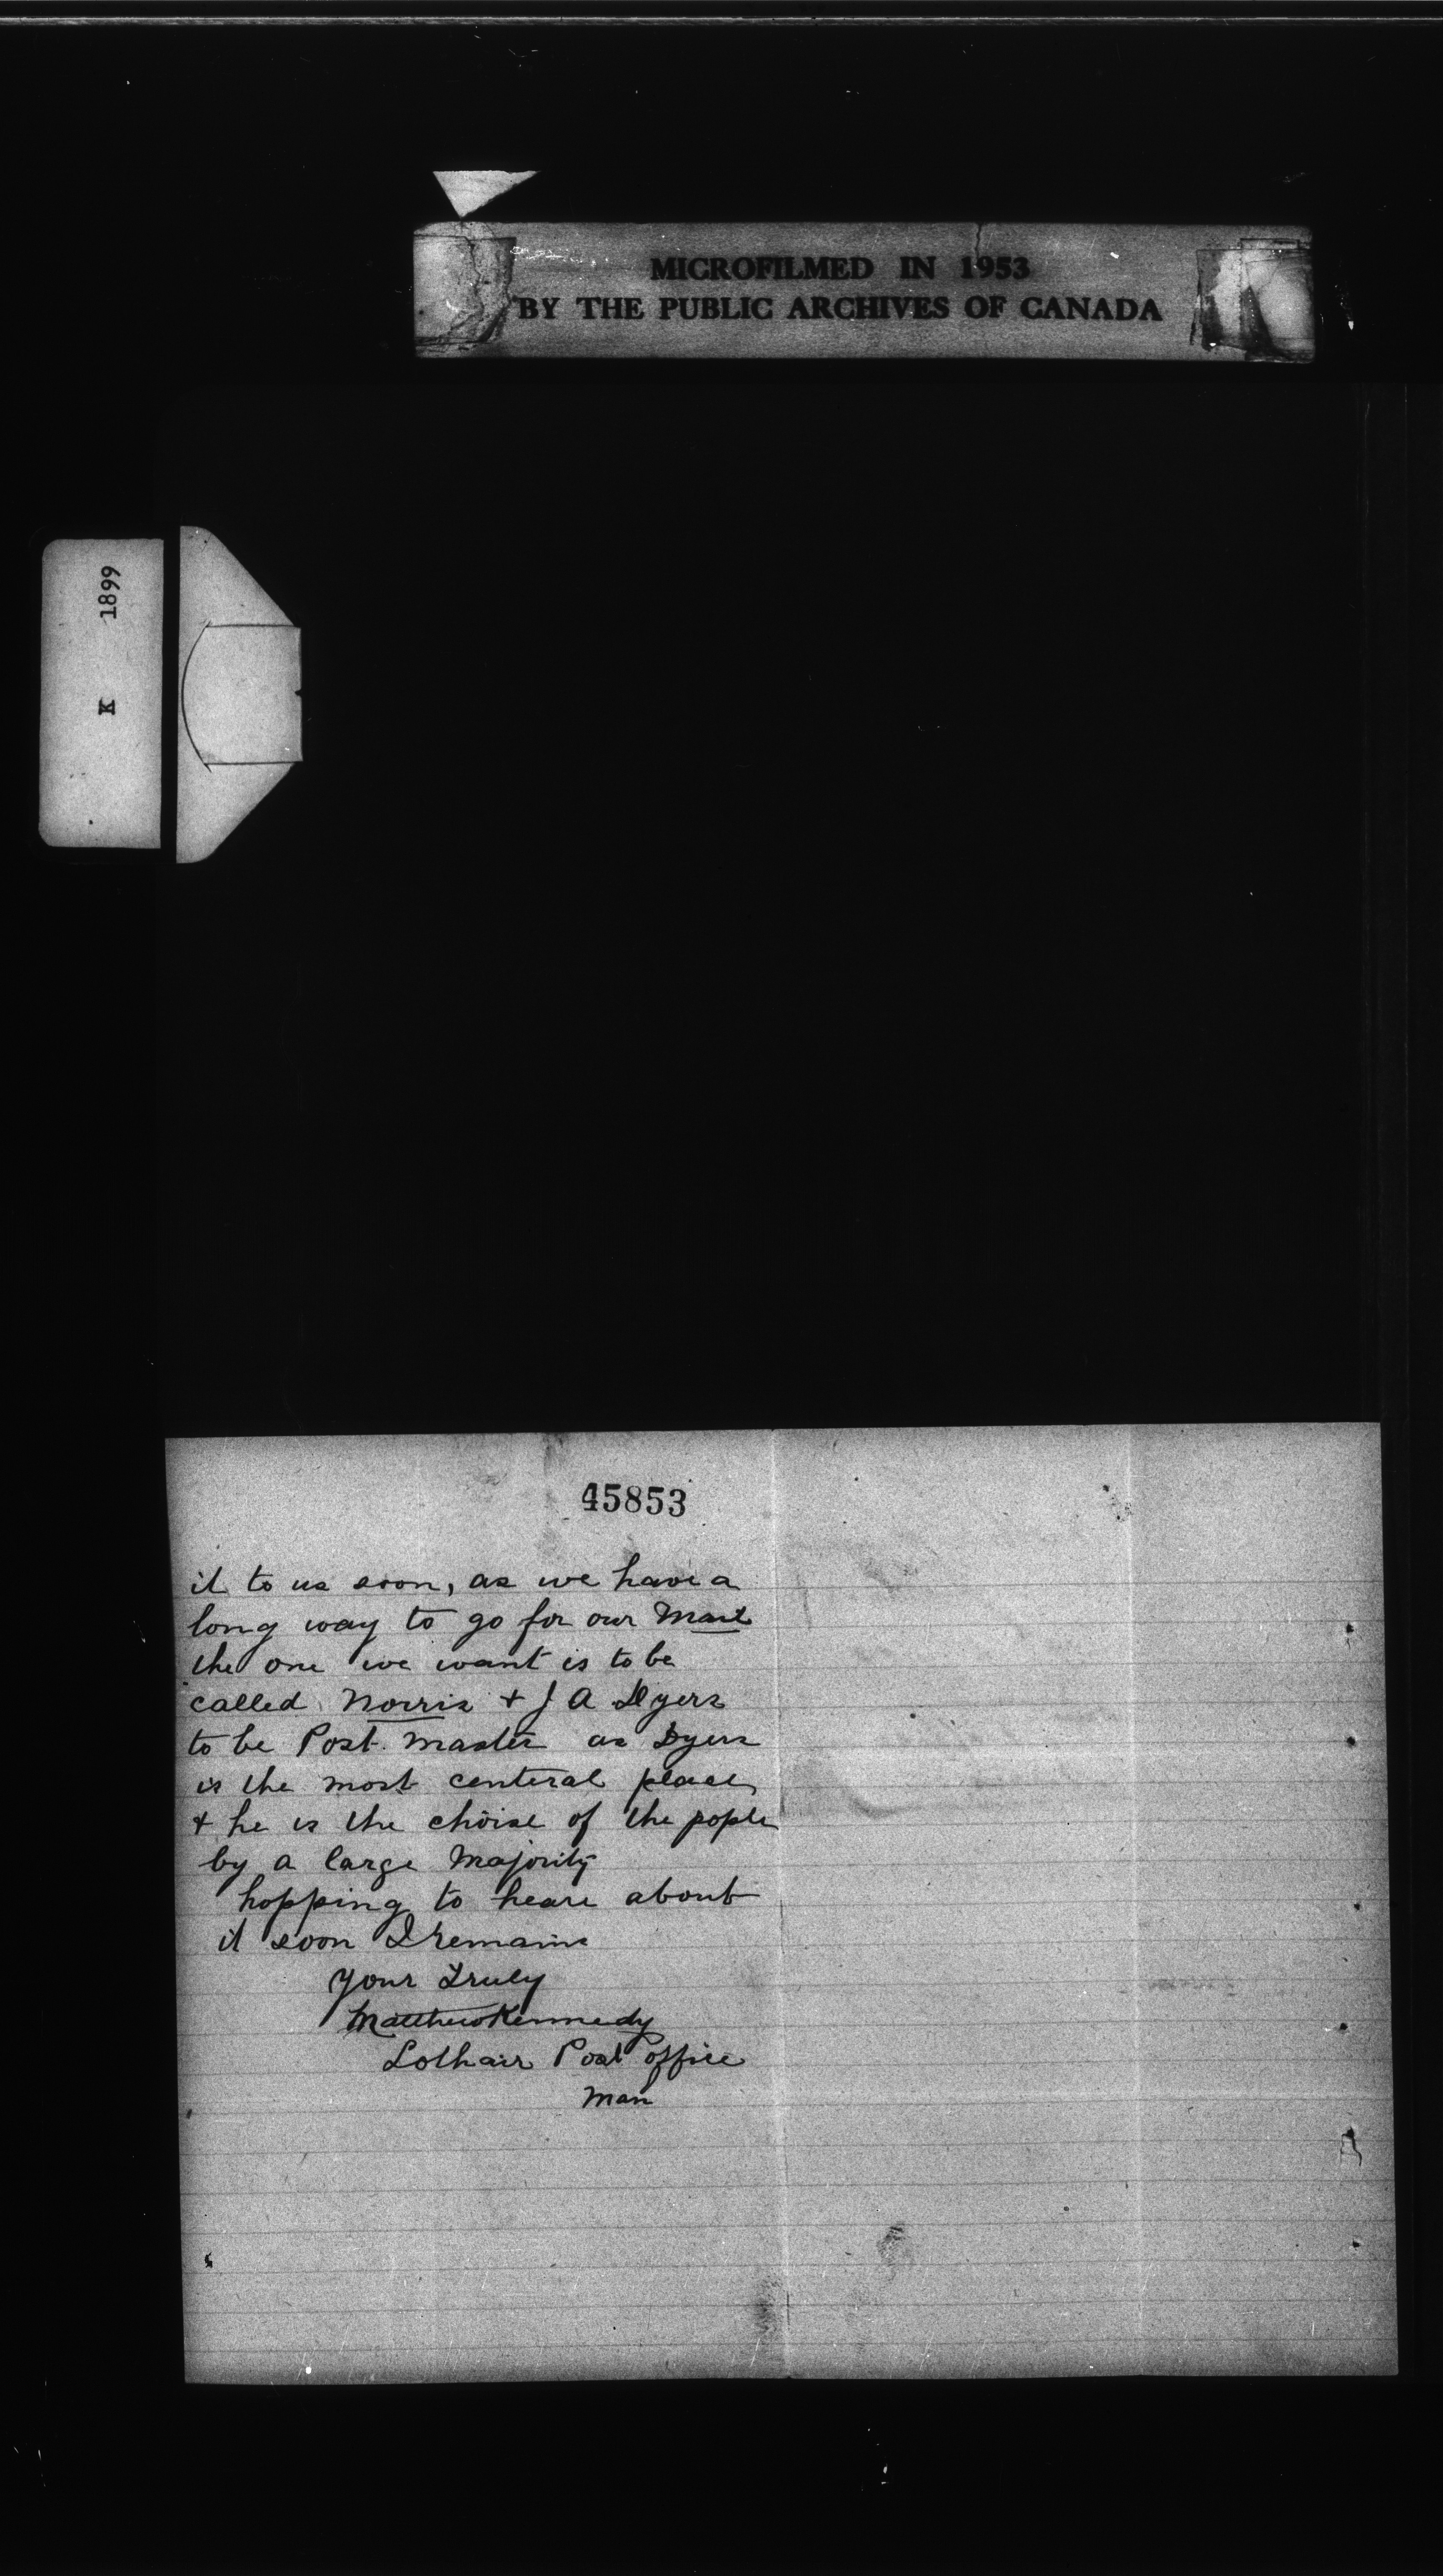 MICROFILMED IN 1953
BY THE PUBLIC ARCHIVES OF CANADA
K 1899
45853
it to us soon, as we have a
long way to go for our Mail
the one we want is to be
called Norris + J A Dyers
to be Post. Master as Dyers
is the most centeral place,
+ he is the choise of the pople
by a large Majority
hopping to heare about
it soon I remain
your Truly
Matthew Kennedy
Lothair Post office
Man